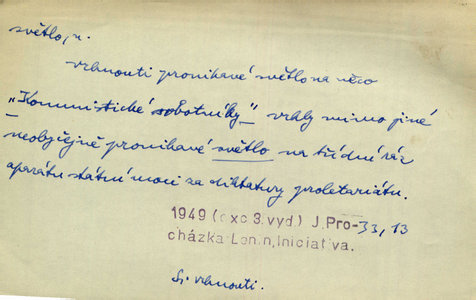 světlo, n.
vrhnouti pronikavé světlo na něco
„Komunistické sobotníky" vrhly mimo jiné
neobyčejně pronikavé světlo na třídní ráz
aparátu státní moci za diktatury proletariátu.
1949 (exc 3.vyd) J.Pro- 33, 13
cházka Lenin, Iniciativa.
vrhnouti.